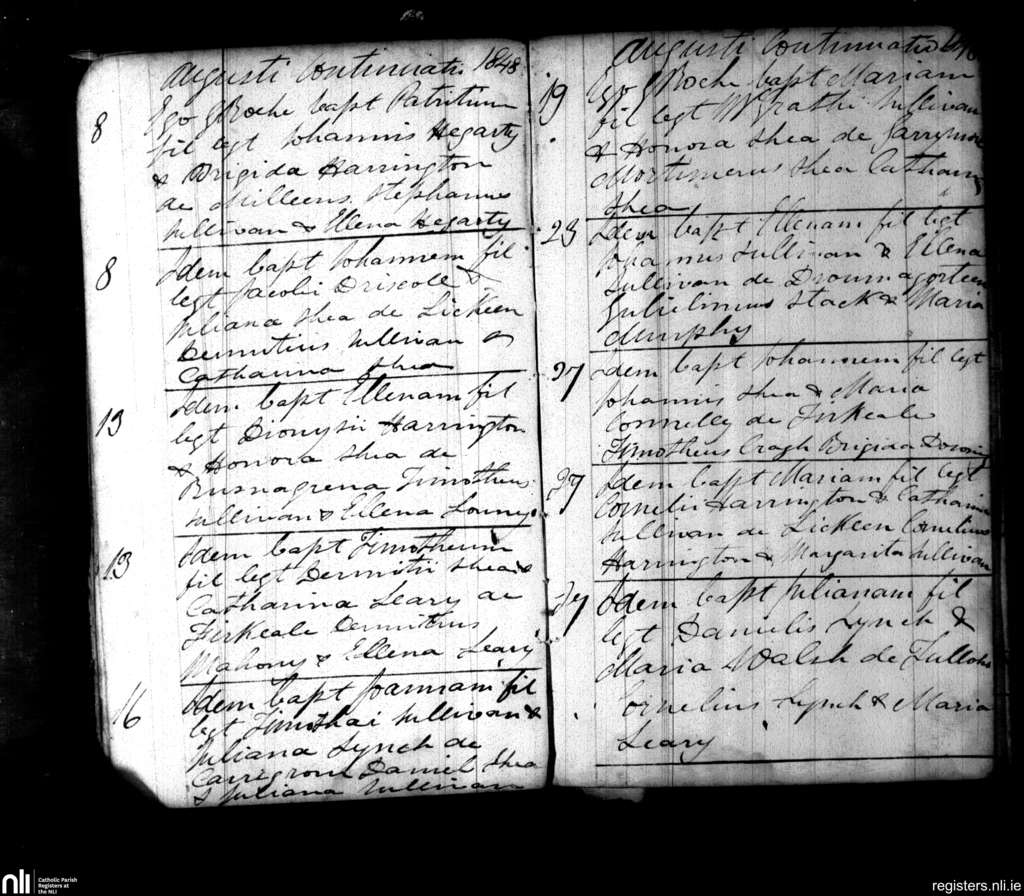 Augusti Continuatr. 1848
8 Ego J Roche bapt Patritium
fil legt Johannis Hegarty
& Brigida Harrington
de Milleens Stephanus
Sullivan & Ellena Hegarty
8 Idem bapt Johannem fil
legt Jacobi Driscole &
Juliana Shea de Lickeen
Dermitius Sullivan &
Catharina Shea
13 Idem bapt Ellenam fil
legt Dionysii Harrington
& Honora Shea de
Timotheus
Sullivan & Ellena
13 Idem bapt Timotheum
fil legt Dermitii Shea &
Catharina Leary de
Firkeale Dermitius
Mahony & Ellena Leary
16 Idem bapt Joannam fil
legt Timothai Sullivan &
Juliana Lynch de
Daniel Shea
& Juliana Sullivan
Augusti Continuatr
19 Ego J Roche bapt Mariam
fil legt Sullivan
& Honora Shea de
Mortimerus Shea
Shea
23 Idem bapt Ellenam fil legt
Johannis Sullivan & Ellena
Sullivan de
Gulielimus Stack & Maria
Murphy
27 Idem bapt Johannem fil legt
Johannis Shea & Maria
Connelly de Firkeale
Timotheus Cragh Brigida
27 Idem bapt Mariam fil legt
Cornelii Harrington &
Sullivan de Lickeen Cornelius
Harrington & Margarita Sullivan
Idem bapt Julianam fil
legt Danielis Lynch &
Maria Walsh de
Cornelius Lynch & Maria
Leary
nli
Catholic Parish
Registers at
the NLI
registers.nli.ie